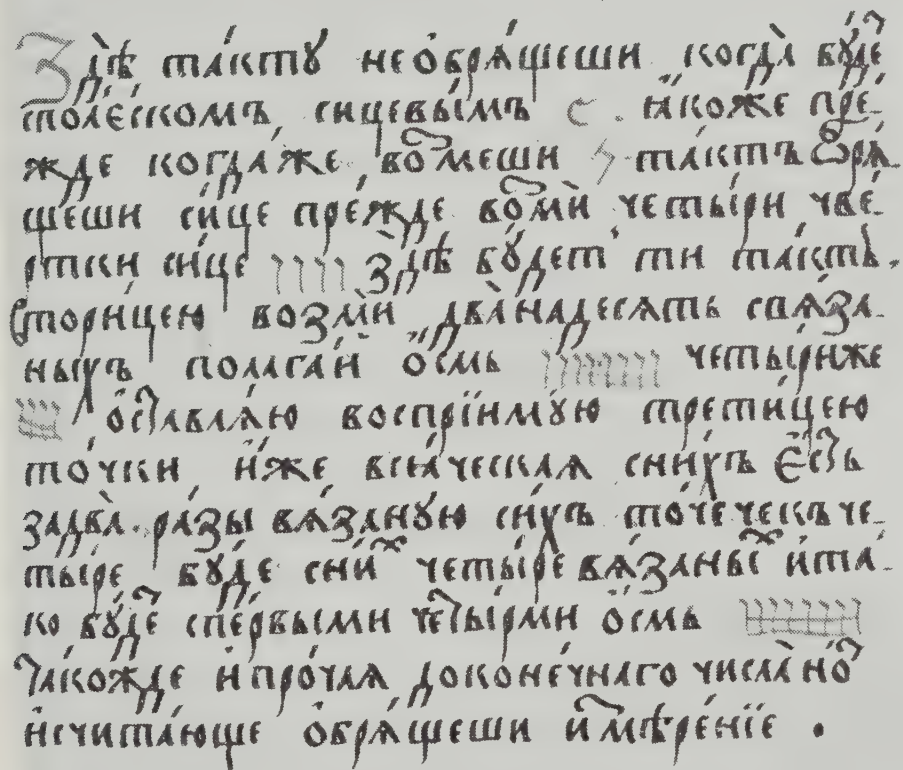 Здѣ та́кту не ѻ҆брѧ́щеши когда̀ бꙋ́деⷮ
споле́скомъ, сицевы́мъ с. ꙗ҆́коже пре́-
жде когда́же. воⷥмеши та́ктъ ѡ҆брѧ́-
щеши си́це пре́жде воⷥмѝ четы́ри чве́-
ртки си́це здѣ̀ бꙋ́детъ ти та́ктъ.
Втори́цею возмѝ два̀надесѧть свѧ́за-
ныхъ полага́й о҆́смь четы́риже
ѻ҆ставлѧ́ю воспрїимꙋ́ю трети́цею
то́чки и҆́же всѧ́ческаѧ си́хъ є҆́сть
задва̀. ра́зы вѧ́занꙋю си́хъ то́чече къче-
ты́ре бꙋ́де сниⷨ четы́ре вѧ́заныⷨ и҆та́-
ко бꙋ́деⷮ спе́рвыми четы́рми ѻ҆́смь
та́кожде и҆про́чаѧ доконе́чнаго числа̀ но
и҆счита́юще ѻ҆брѧ́щеши и҆ⷥмѣре́нїе.